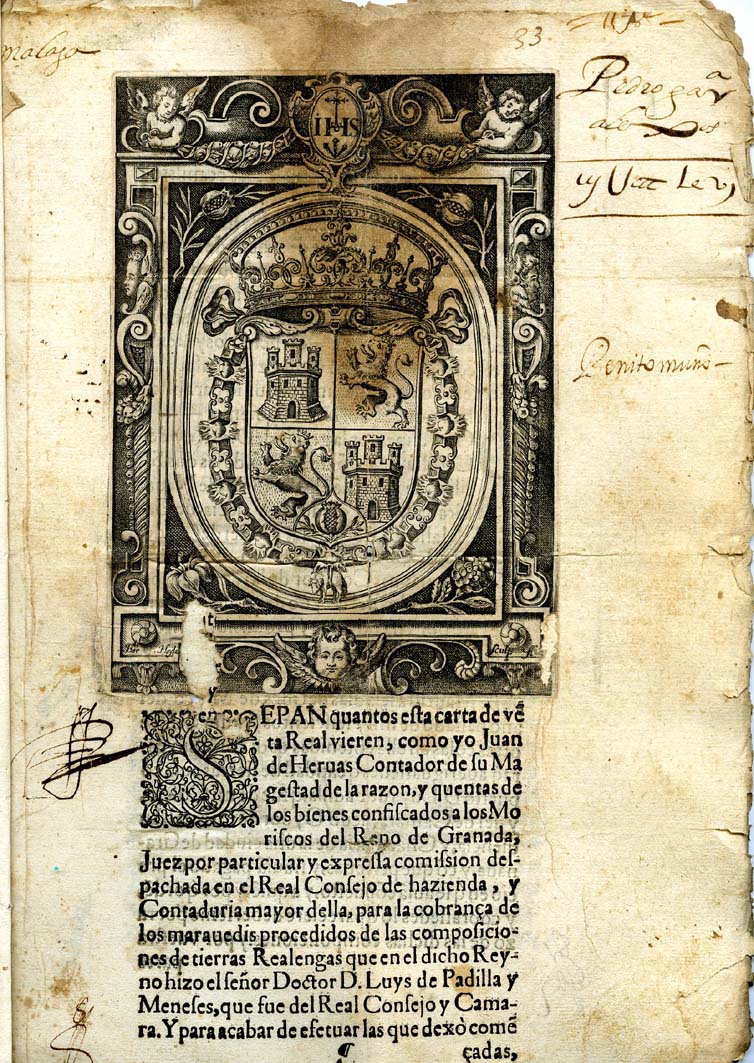 malaga
33
Pedro gar
IHS
Benito muño
SEPAN quantos eſta carta de vē
ta Real vieren, como yo Juan
de Heruas Contador de ſu Ma
geſtad de la razon, y quentas de
los bienes confiſcados a los Mo
riſcos del Reno de Granada,
Juez por particular y expreſſa comiſsion deſ-
pachada en el Real Conſejo de hazienda, y
Contaduria mayor della, para la cobrança de
los marauedis procedidos de las compoſicio-
nes de tierras Realengas que en el dicho Rey-
no hizo el ſeñor Doctor D. Luys de Padilla y
Meneſes, que fue del Real Conſejo y Cama-
ra. Y para acabar de efetuar las que dexò comē
çadas,